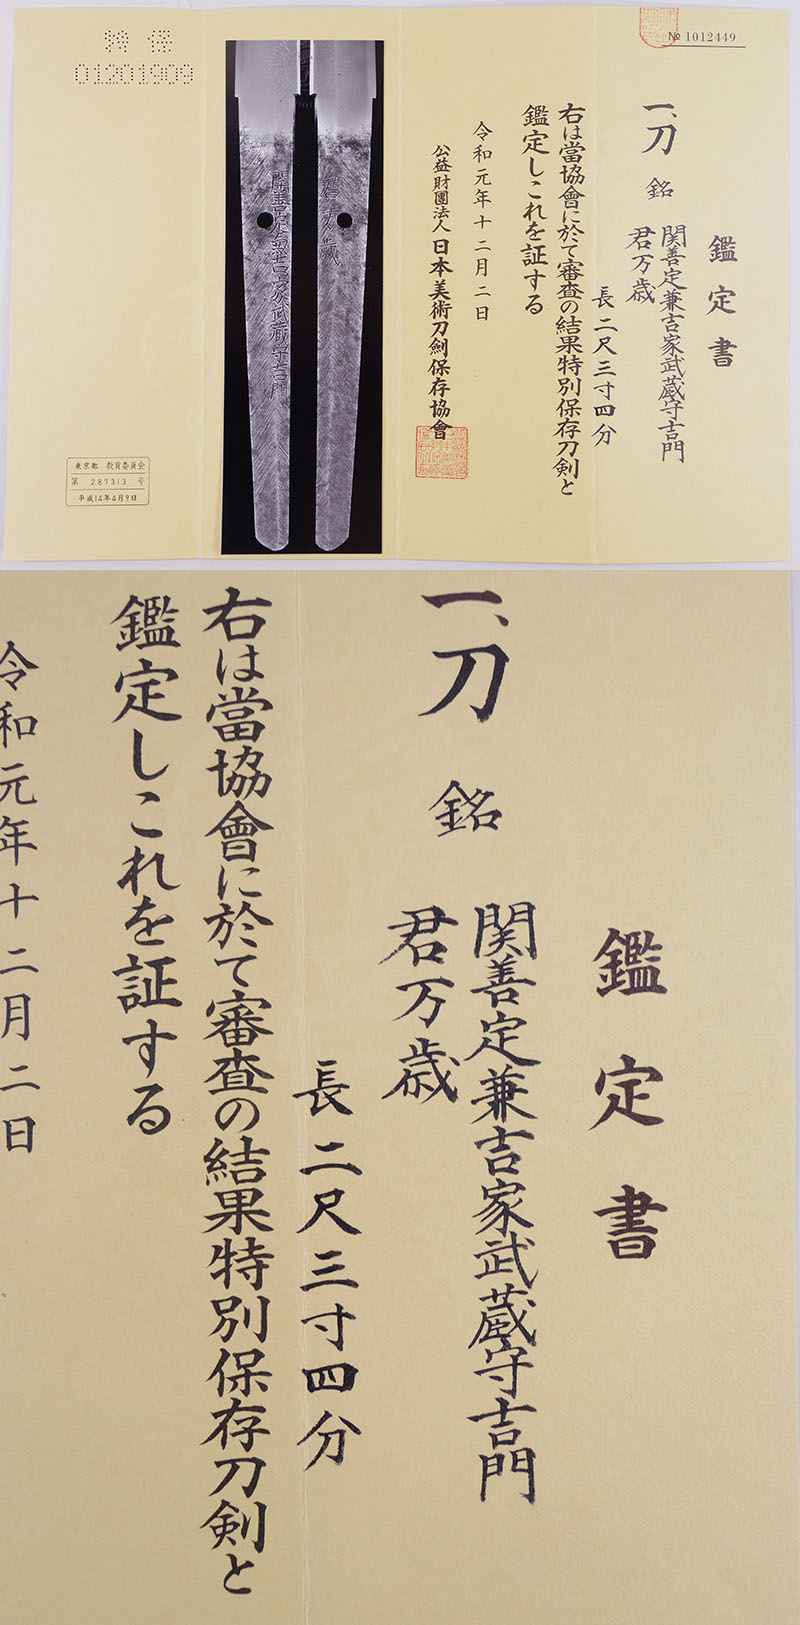 № 1012449
鑑定書
一、刀 銘 関善定兼吉家武蔵守吉門
君万歳
長二尺三寸四分
右は當協會に於て審査の結果特別保存刀剣と
鑑定しこれを証する
令和元年十二月二日
公益財團法人 日本美術刀劍保存協會
関善定兼吉家武蔵守吉門
君万歳
特保
01201909
東京都 教育委員会
第 287313 号
平成14年4月9日
鑑定書
一、刀 銘 関善定兼吉家武蔵守吉門
君万歳
長二尺三寸四分
右は當協會に於て審査の結果特別保存刀剣と
鑑定しこれを証する
令和元年十二月二日